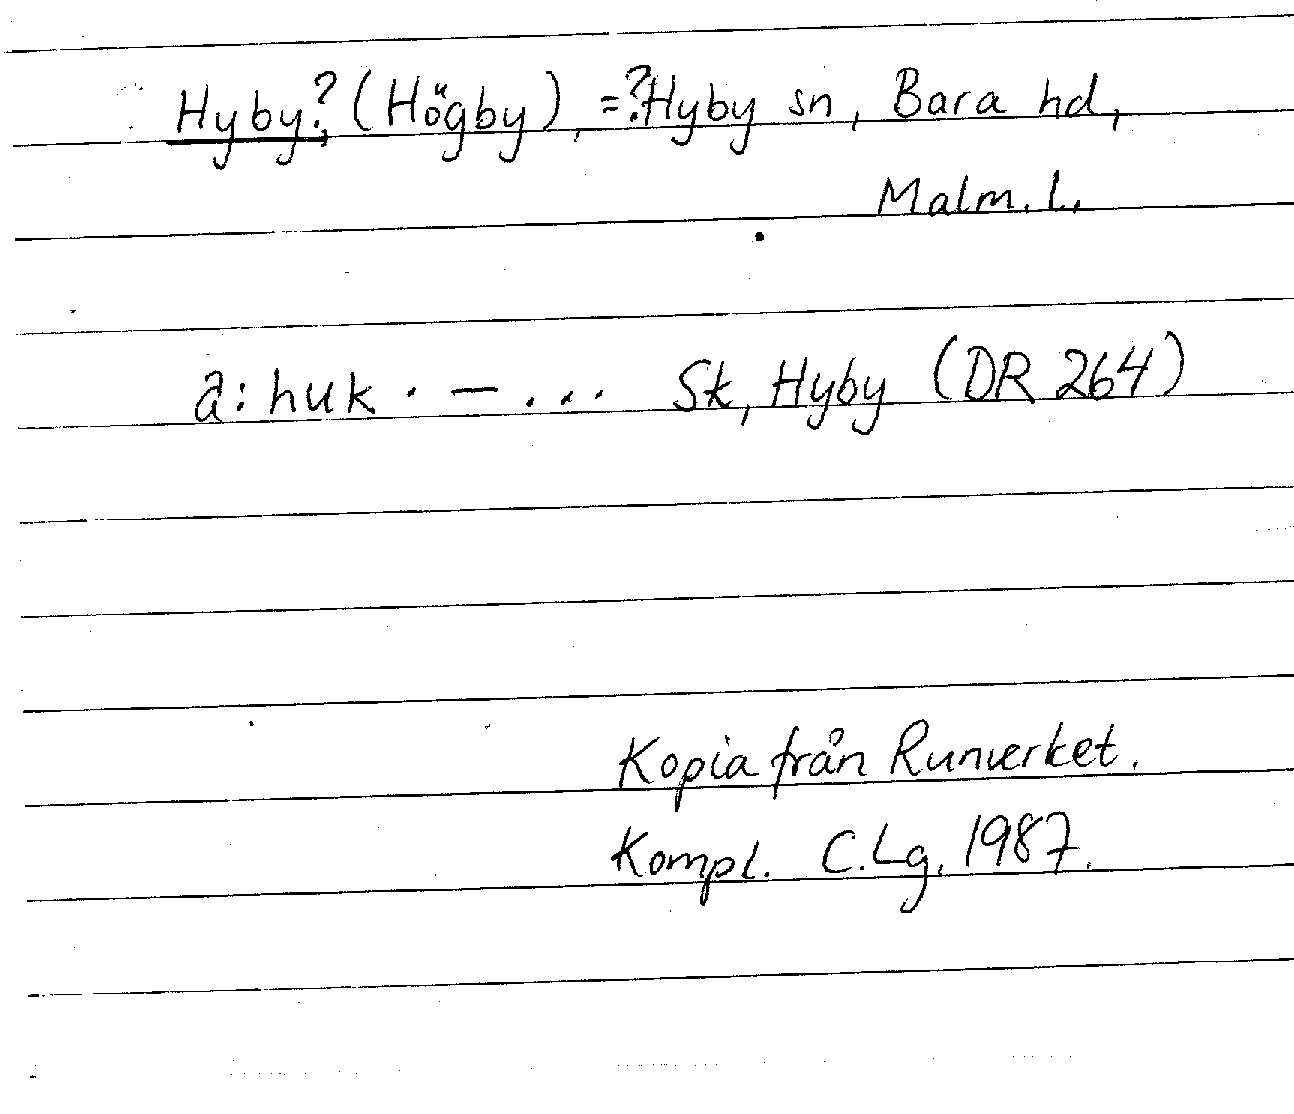 Hyby?, (Högby), =?Hyby sn, Bara hd,
Malm. l.
â:huk · – ... Sk, Hyby (DR 264)
Kopia från Runverket.
Kompl. C.Lg. 1987.